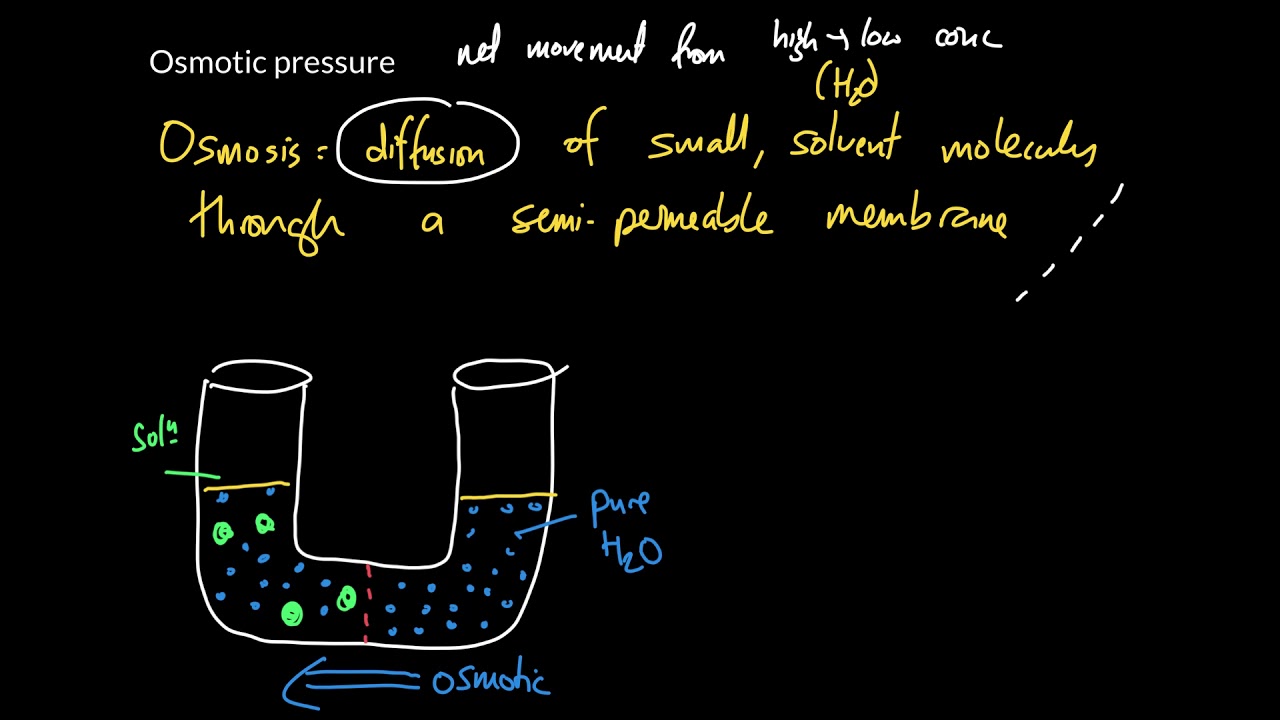 Osmotic pressure
net movement from high → low conc
(H₂O)
Osmosis = diffusion of small, solvent molecules
through a semi-permeable membrane
Solⁿ
pure
H₂O
osmotic